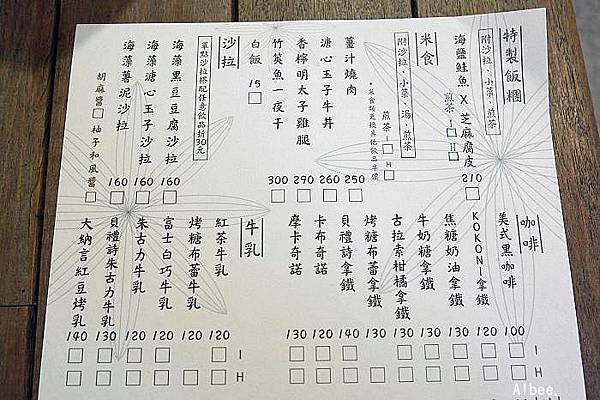 特製飯糰
附沙拉、小菜、煎茶
海鹽鮭魚 X 芝麻腐皮 210
煎茶 I H
米食
附沙拉、小菜、湯、煎茶
煎茶 I H
薑汁燒肉 250
溏心玉子牛丼 260
香檸明太子雞腿 290
竹筴魚一夜干 300
白飯 15
沙拉
單點沙拉搭配任意飲品折30元
海藻黑豆豆腐沙拉 160
海藻溏心玉子沙拉 160
海藻薯泥沙拉 160
胡麻醬 柚子和風醬
咖啡
美式黑咖啡 100
KOKONI拿鐵 120
焦糖奶油拿鐵 130
牛奶糖拿鐵 130
古拉索柑橘拿鐵 130
烤糖布蕾拿鐵 130
貝禮詩拿鐵 140
卡布奇諾 120
摩卡奇諾 130
I
H
牛乳
紅茶牛乳 120
烤糖布蕾牛乳 120
富士白巧牛乳 120
朱古力牛乳 120
貝禮詩朱古力牛乳 130
大納言紅豆烤乳 140
I
H
Albee.